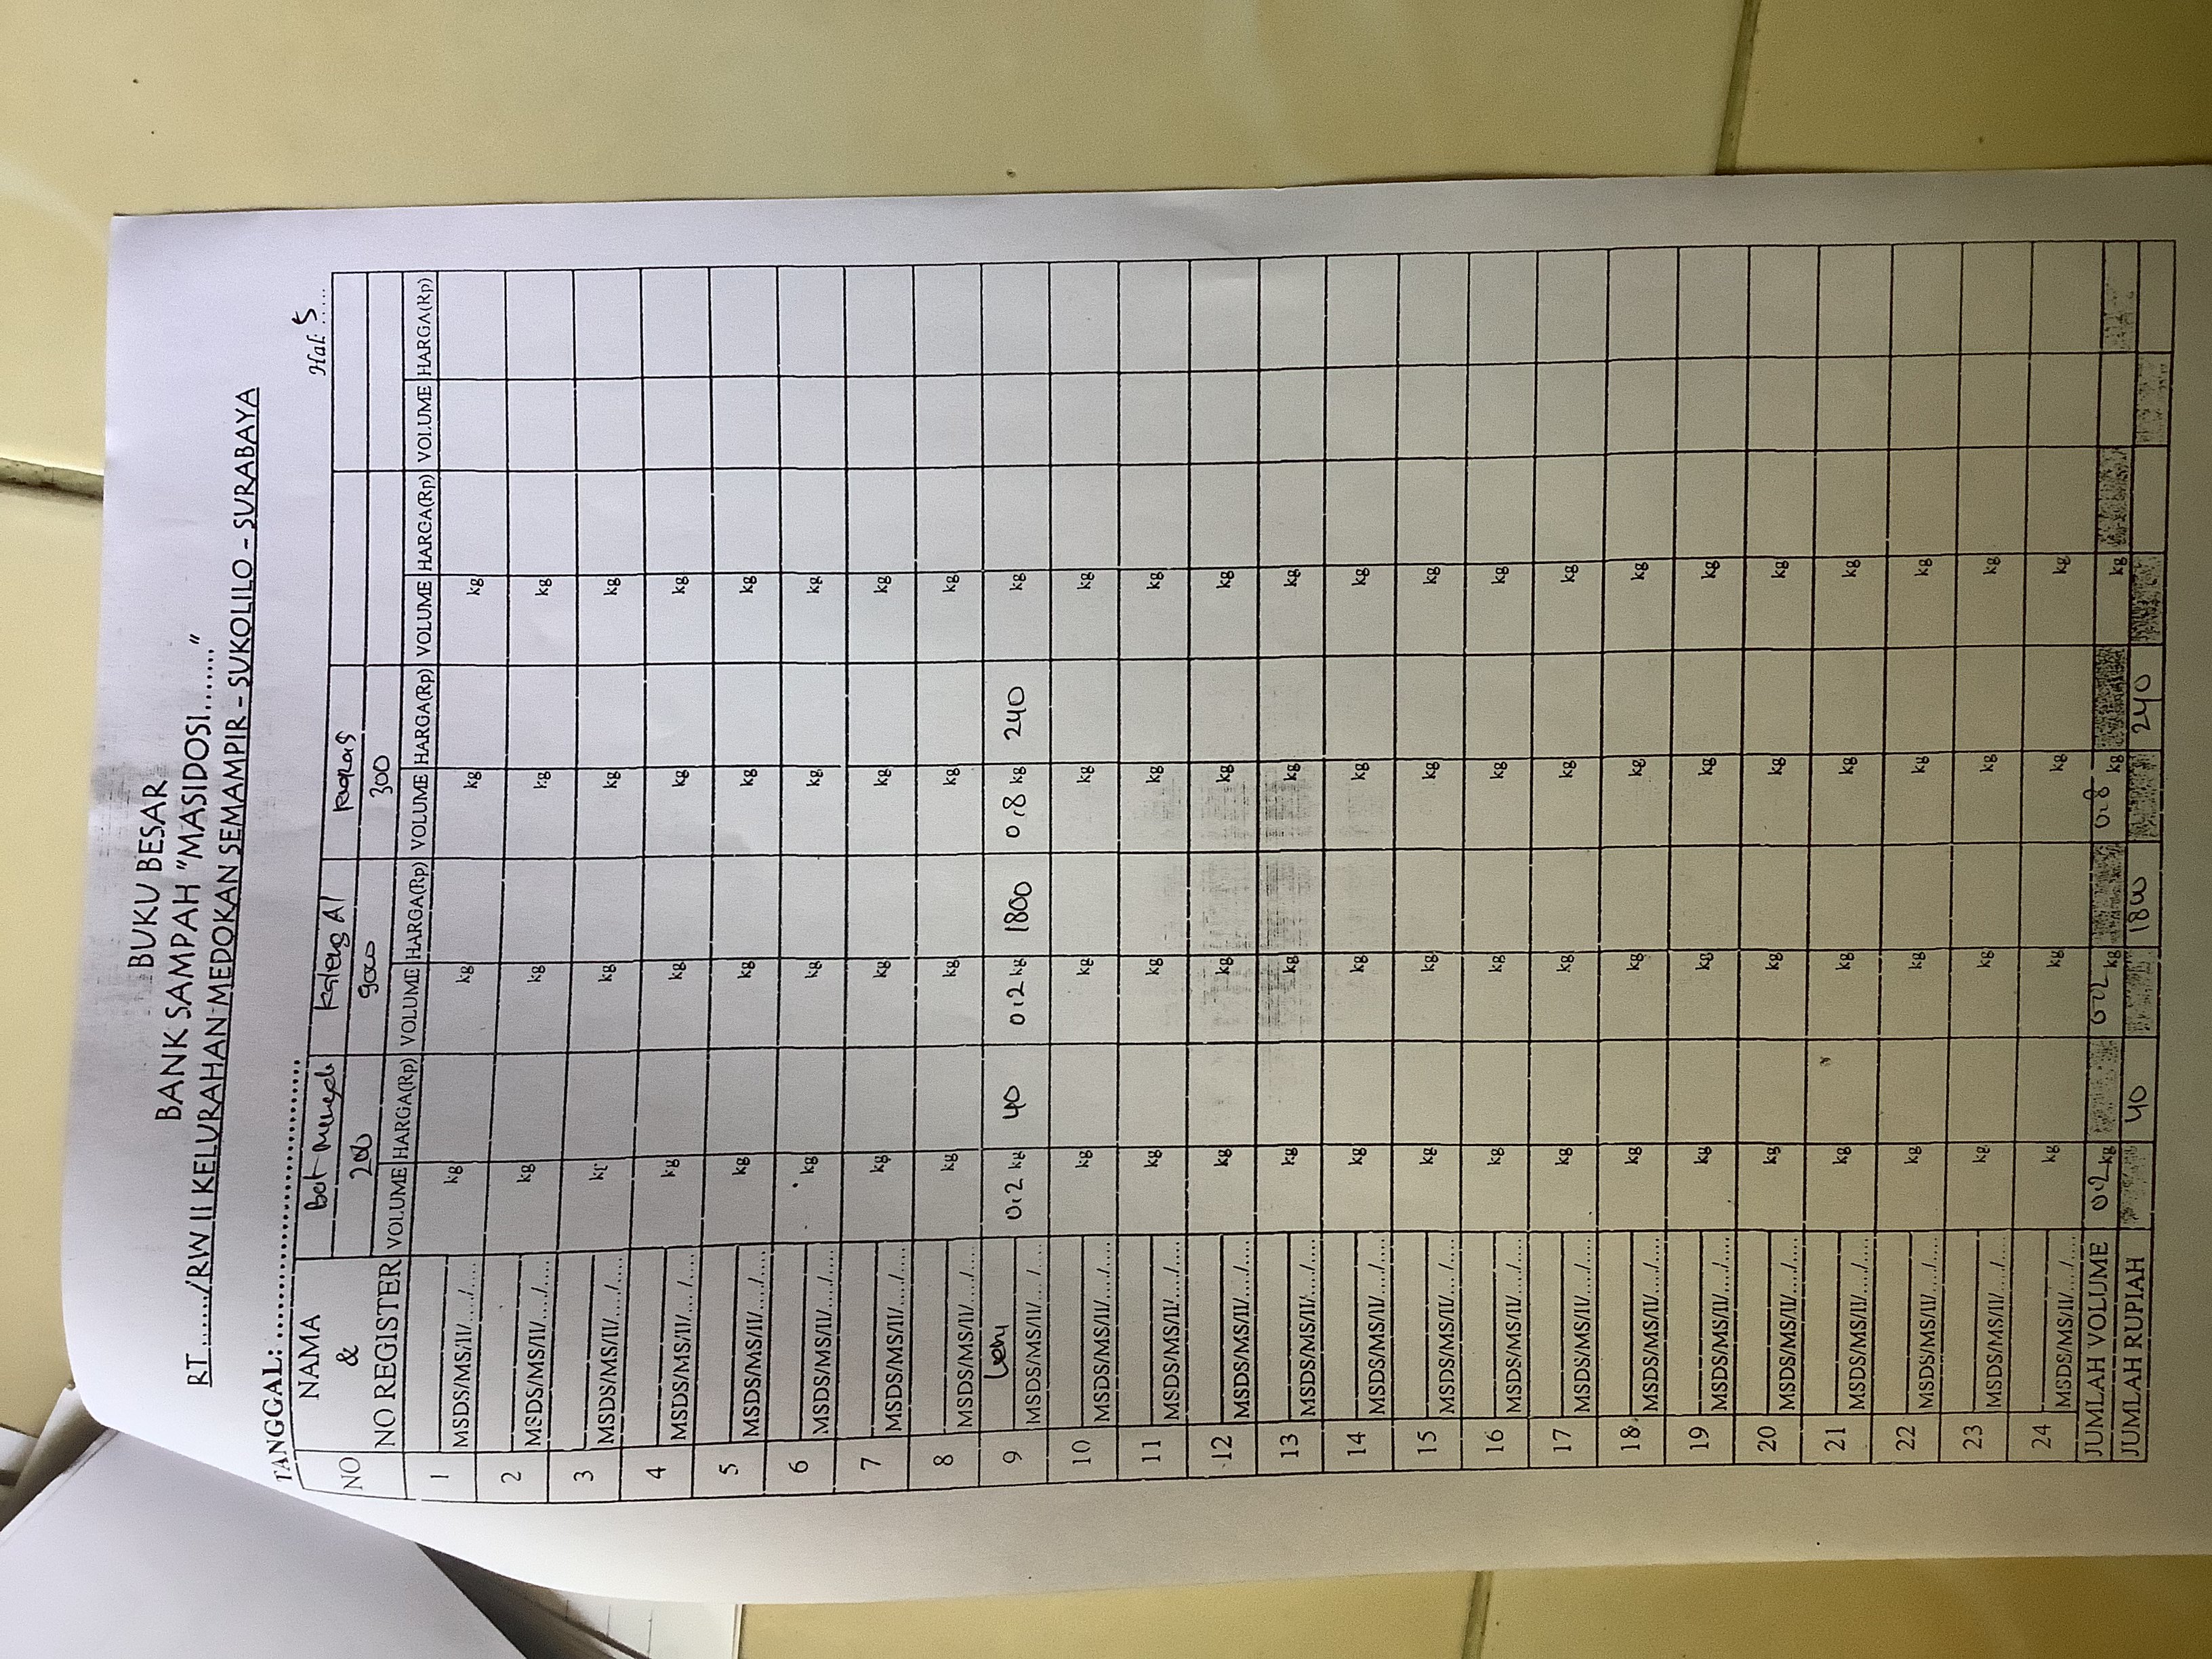 BUKU BESAR
BANK SAMPAH "MASIDOSI......."
RT....../RW II KELURAHAN MEDOKAN SEMAMPIR - SUKOLILO - SURABAYA
TANGGAL: .............................
Hal: 5.....
NO NAMA & NO REGISTER Bot Kaleng Al
200 9000 300
VOLUME HARGA(Rp) VOLUME HARGA(Rp) VOLUME HARGA(Rp) VOLUME HARGA(Rp) VOLUME HARGA(Rp)
1 kg kg kg kg
MSDS/MS/II/..../....
2 kg kg kg kg
MSDS/MS/II/..../....
3 kg kg kg kg
MSDS/MS/II/..../....
4 kg kg kg kg
MSDS/MS/II/... /....
5 kg kg kg kg
MSDS/MS/II/..../....
6 kg kg kg kg
MSDS/MS/II/..../....
7 kg kg kg kg
MSDS/MS/II/..../....
8 kg kg kg kg
MSDS/MS/II/..../....
9 0,2 kg 40 0,2 kg 1800 0,8 kg 240 kg
MSDS/MS/II/... /....
10 kg kg kg kg
MSDS/MS/II/..../....
11 kg kg kg kg
MSDS/MS/II/..../....
12 kg kg kg kg
MSDS/MS/II/..../....
13 kg kg kg kg
MSDS/MS/II/..../....
14 kg kg kg kg
MSDS/MS/II/..../....
15 kg kg kg kg
MSDS/MS/II/... /....
16 kg kg kg kg
MSDS/MS/II/..../....
17 kg kg kg kg
MSDS/MS/II/..../....
18 kg kg kg kg
MSDS/MS/II/..../....
19 kg kg kg kg
MSDS/MS/II/..../....
20 kg kg kg kg
MSDS/MS/II/..../....
21 kg kg kg kg
MSDS/MS/II/..../....
22 kg kg kg kg
MSDS/MS/II/..../....
23 kg kg kg kg
MSDS/MS/II/..../....
24 kg kg kg kg
MSDS/MS/II/..../....
JUMLAH VOLUME 0.2 kg 0.2 kg 0.8 kg kg
JUMLAH RUPIAH 40 1800 240